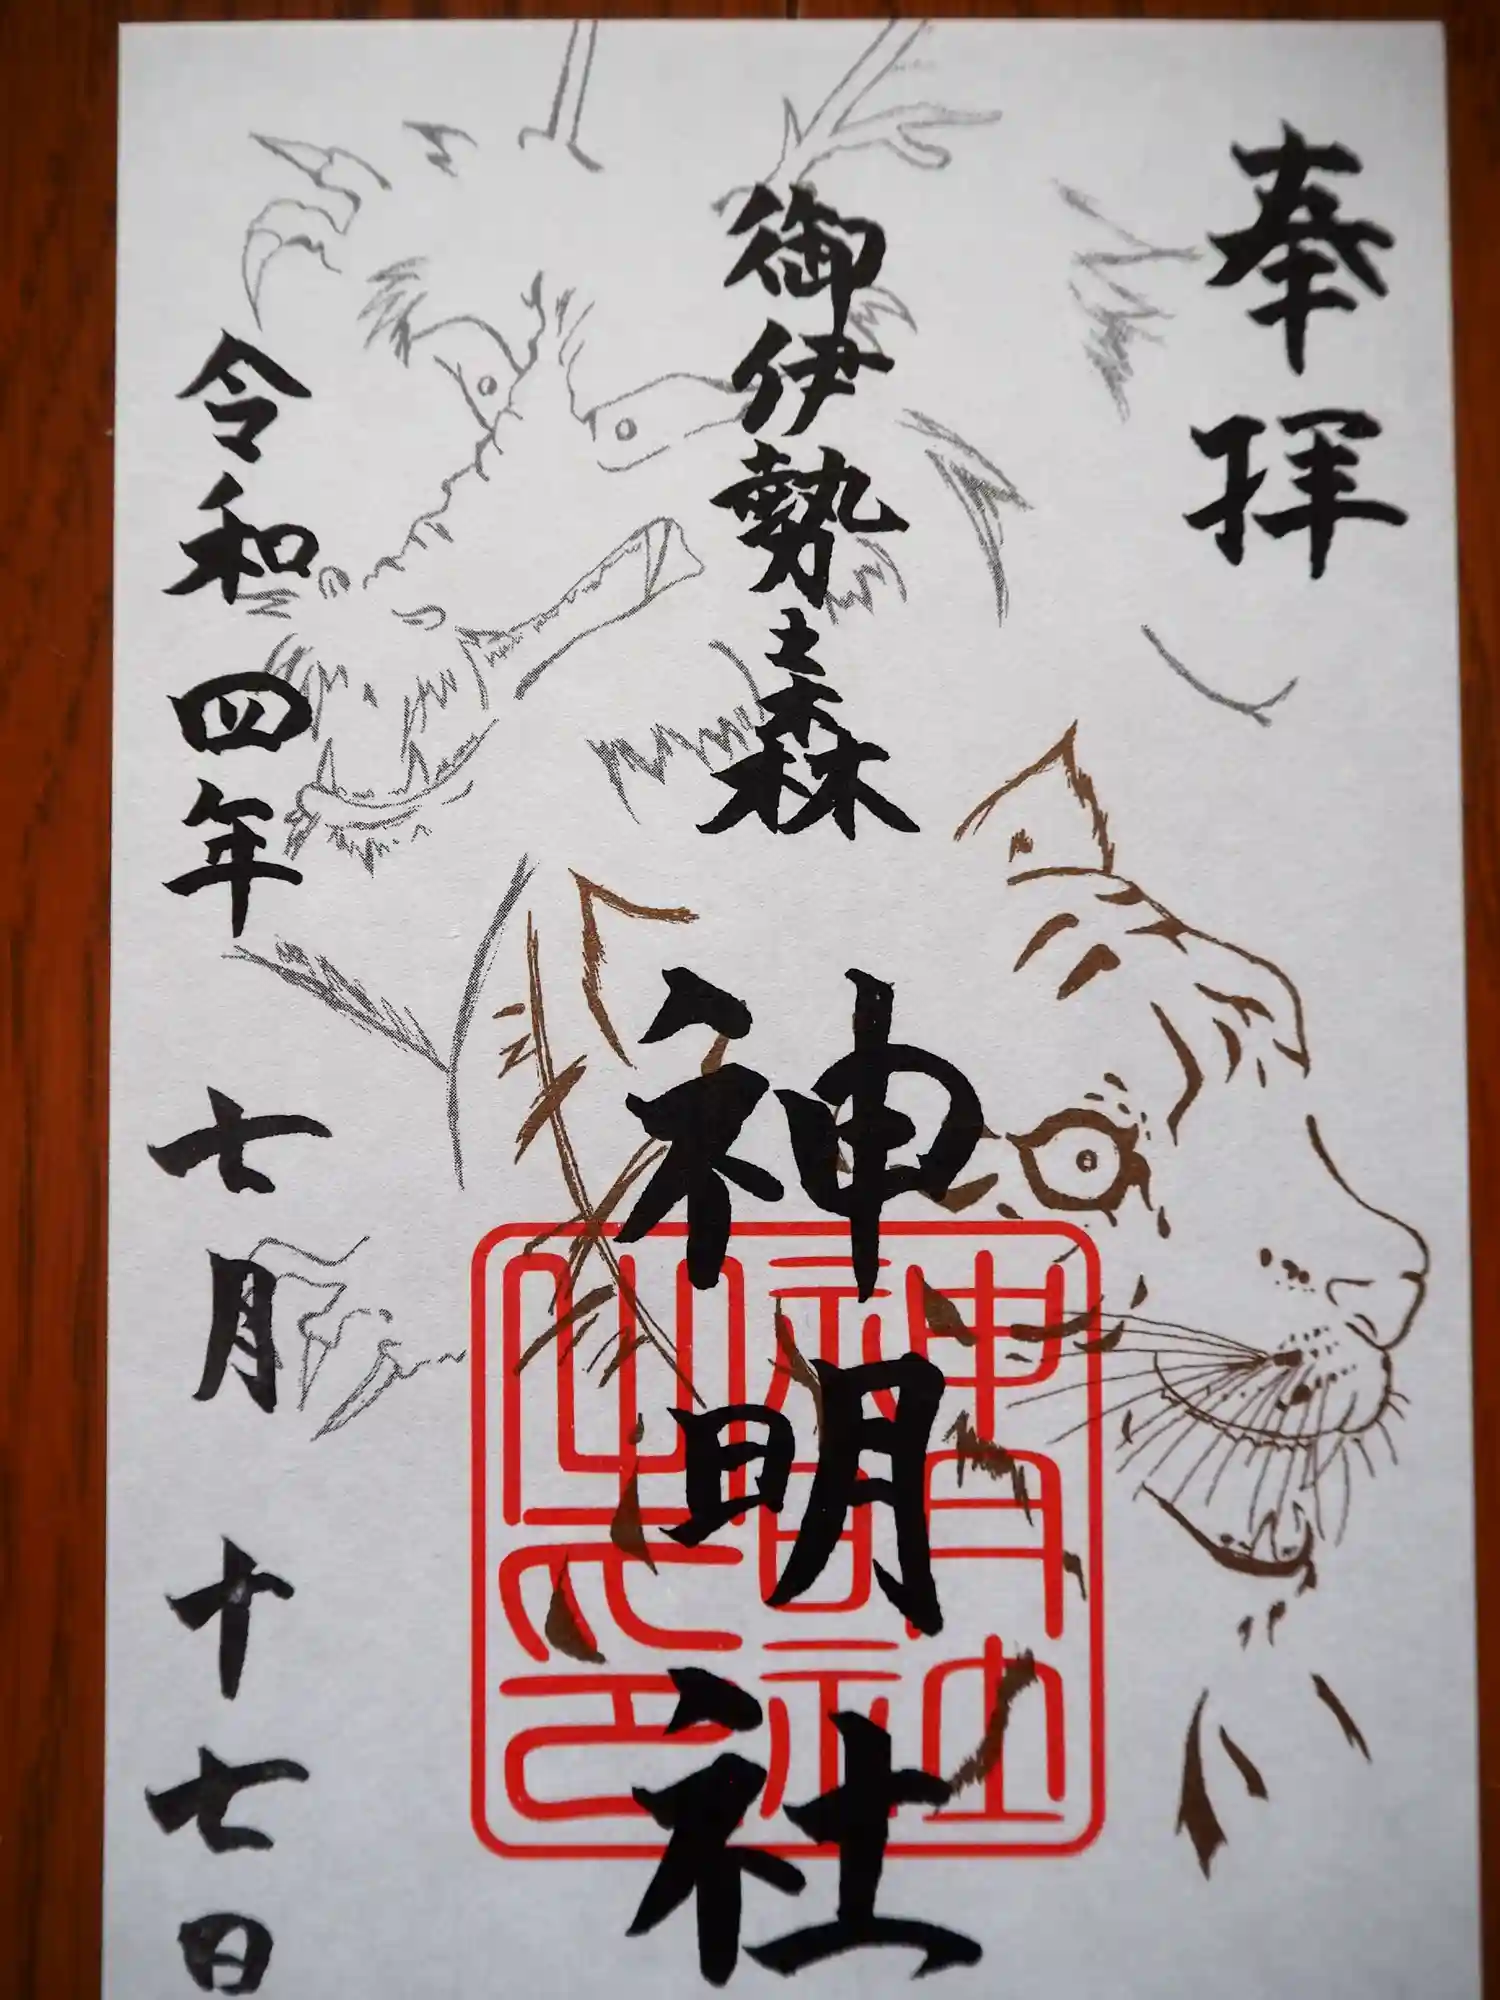 奉拝
御伊勢之森
神明社
神明社之印
令和四年七月十七日